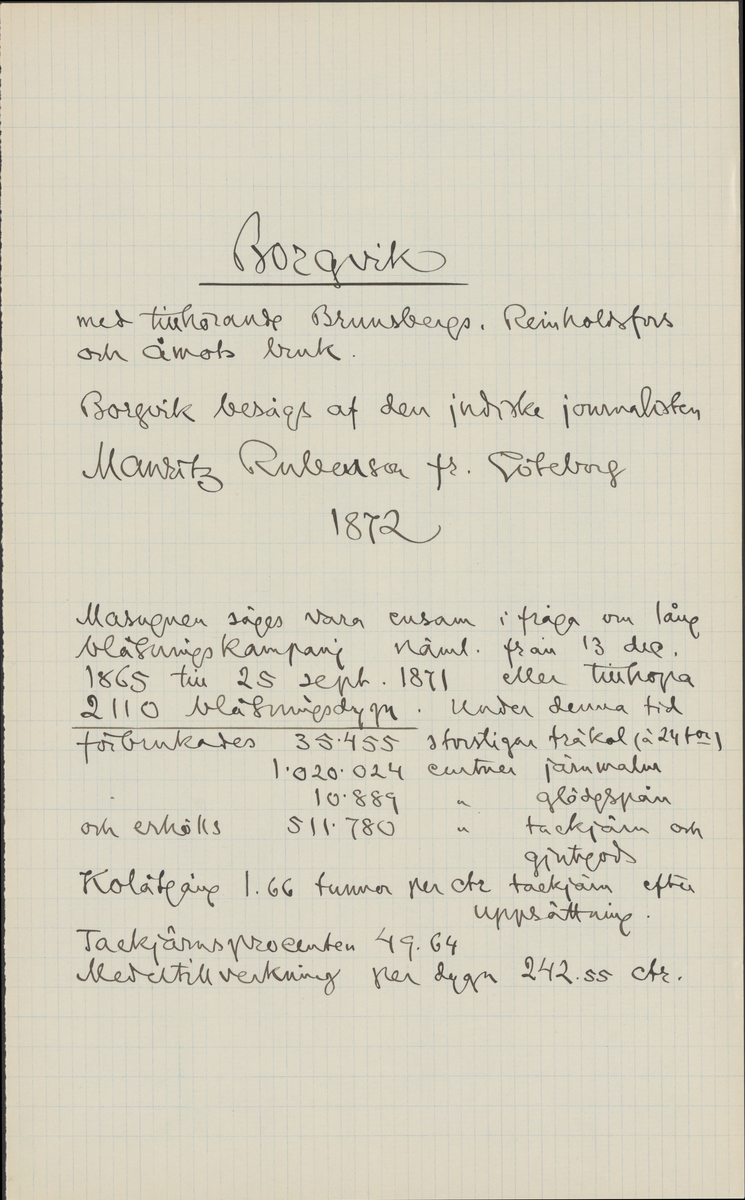 Borgvik
med tillhörande Brunsbergs, Reinholdsfors
och Åmots bruk.
Borgvik besågs af den judiske journalisten
Mauritz Rubenson fr. Göteborg
1872
Masugnen säges vara ensam i fråga om lång
blåsningskampanj näml. från 13 dec.
1865 till 25 sept. 1871 eller tillhopa
2110 blåsningsdygn. Under denna tid
förbrukades 35.455 storstigar träkol (à 24 tor)
1.020.024 centner järnmalm
10.889 " glödgspån
och erhölls 511.780 " tackjärn och
gjutgods
Kolåtgång 1.66 tunnor per ctr tackjärn efter
uppsättning.
Tackjärnsprocenten 49.64
Medeltillverkning per dygn 242.55 ctr.